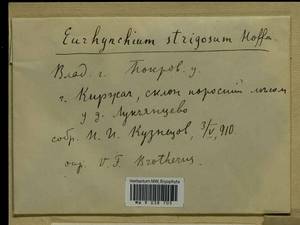 Eurhynchium strigosum Hoffm.
Влад. г. Покров. у.
г. Киржач, склон поросший лесом
у д. Лукьянцево
собр. Н. И. Кузнецов, 3/V, 910
опр. V. F. Brotherus.
Herbarium MW, Bryophyta